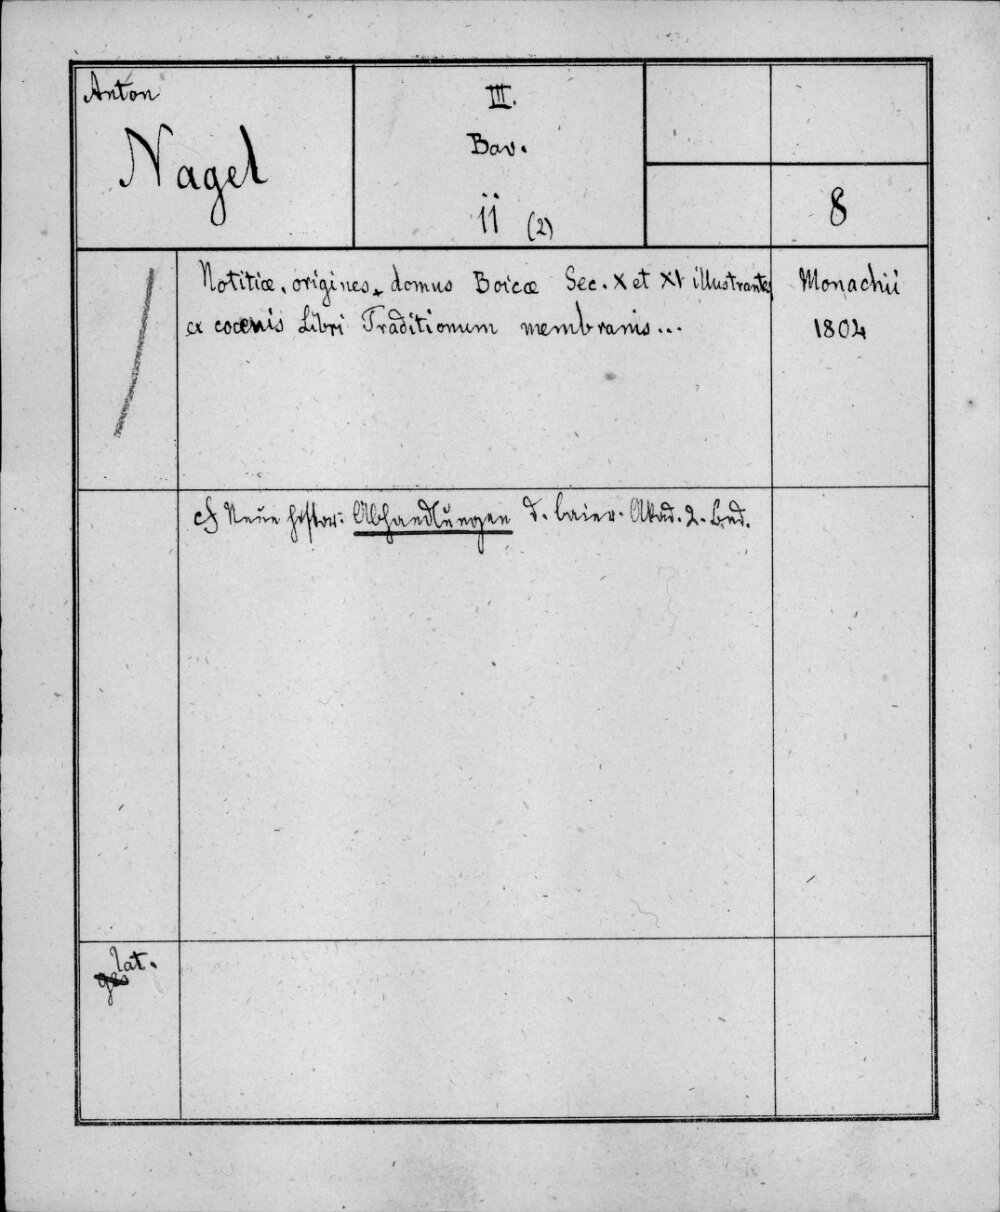 Anton
Nagel
III.
Bav.
ii (2)
8
Notitiæ, origines domus Boicæ Sec. X et XI illustrantes
ex coævis Libri Traditionum membranis...
Monachii
1804
cf Neue histor. Abhandlungen d. baier. Akad. 2. Bnd.
lat.